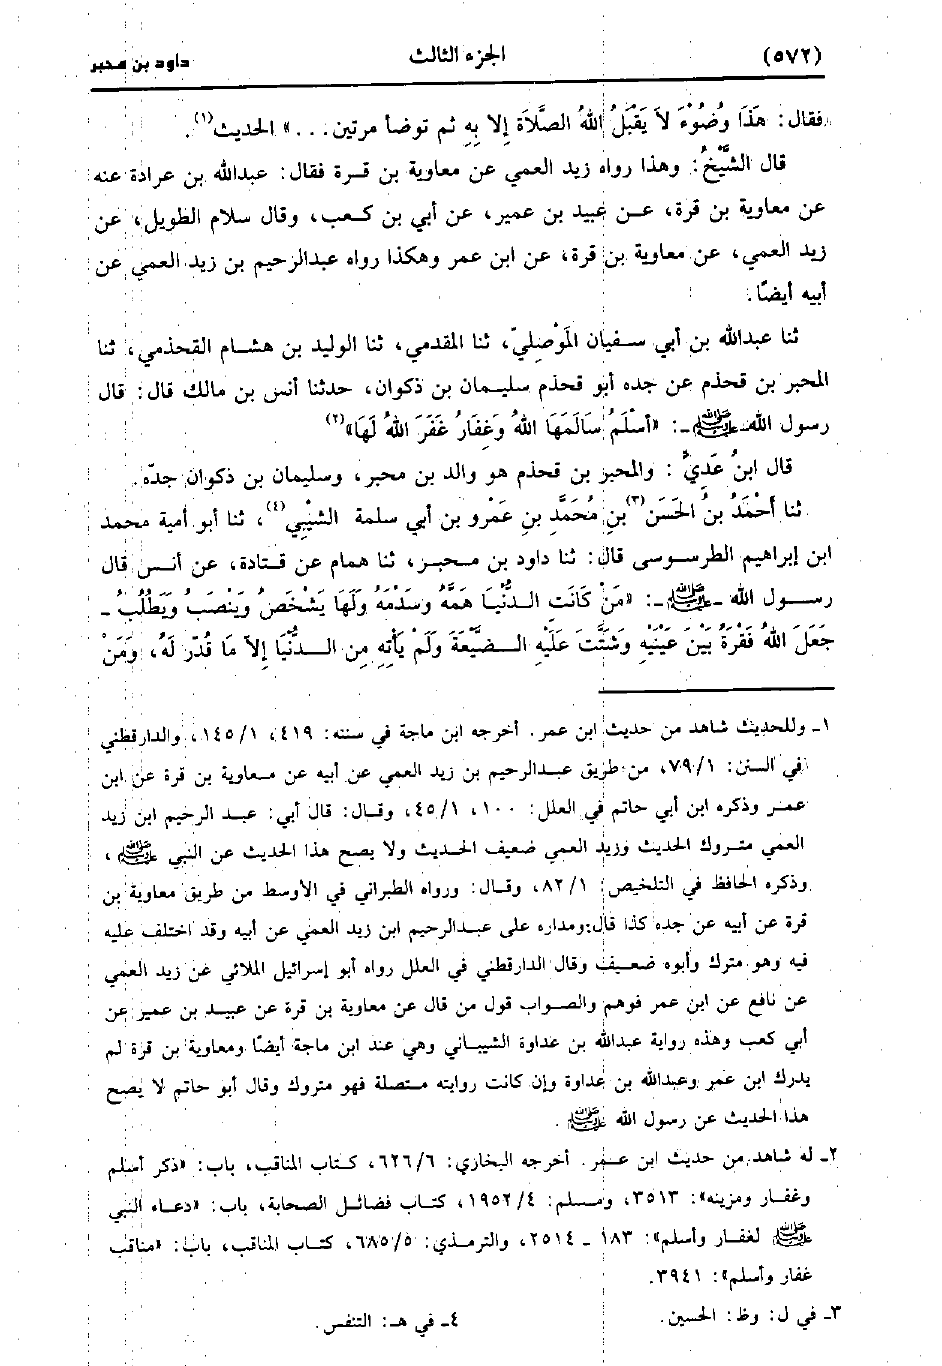 (٥٧٢) الجزء الثالث داود بن محبر
فقال: هَذَا وُضُوْءَ لاَ يَقْبَلُ اللهُ الصَّلَاَةَ إلا بِهِ ثم توضأ مرتين...» الحديث(١).
قال الشَّيْخُ: وهذا رواه زيد العمي عن معاوية بن قرة فقال: عبدالله بن عرادة عنه
عن معاوية بن قرة، عن عبيد بن عمير، عن أبي بن كعب، وقال سلام الطويل، عن
زيد العمي، عن معاوية بن قرة، عن ابن عمر وهكذا رواه عبدالرحيم بن زيد العمي عن
أبيه أيضًا.
ثنا عبدالله بن أبي سفيان المَوْصِليّ، ثنا المقدمي، ثنا الوليد بن هشام القحذمي، ثنا
المحبر بن قحذم عن جده أبو قحذم سليمان بن ذكوان، حدثنا أنس بن مالك قال: قال
رسول الله ـ ﷺ ـ: «أَسْلَمُ سَالَمَهَا اللهُ وَغِفَارُ غَفَرَ اللهُ لَهَا»(٢)
قال ابنُ عَدِيٍّ: والمحبر بن قحذم هو والد بن محبر، وسليمان بن ذكوان جدّه.
ثنا أَحْمَدُ بنُ الحَسَن(٣) بنِ مُحَمَّدِ بنِ عَمْرو بن أبي سلمة الشِيْبِي(٤)، ثنا أبو أمية محمد
ابن إبراهيم الطرسوسى قال: ثنا داود بن محبر، ثنا همام عن قتادة، عن أنس قال
رسول الله ـ ﷺ ـ: «مَنْ كَانَت الدنْيَا هَمَّهُ وسَدْمَهُ ولَهَا يَشْخَصُ وَيَنْصَبُ وَيَطْلُبُ ـ
جَعَلَ اللهُ فَقْرَهُ بَيْنَ عَيْنَيْهِ وَشَتَّتَ عَلَيْهِ الضيْعَةَ وَلَمْ يَأتِهِ مِن الدنْيَا إلاَ مَا قُدّر لَهُ، وَمَنْ
١ـ وللحديث شاهد من حديث ابن عمر. أخرجه ابن ماجة في سننه: ٤١٩، ١/ ١٤٥، والدارقطني
في السنن: ١/ ٧٩، من طريق عبدالرحيم بن زيد العمي عن أبيه عن معاوية بن قرة عن ابن
عمر وذكره ابن أبي حاتم في العلل: ١٠٠، ١/ ٤٥، وقال: قال أبي: عبد الرحيم ابن زيد
العمي متروك الحديث وزيد العمي ضعيف الحديث ولا يصح هذا الحديث عن النبي ﷺ،
وذكره الحافظ في التلخيص: ١/ ٨٢، وقال: ورواه الطبراني في الأوسط من طريق معاوية بن
قرة عن أبيه عن جده كذا قال:ومداره على عبدالرحيم ابن زيد العمي عن أبيه وقد اختلف عليه
فيه وهو مترك وأبوه ضعيف وقال الدارقطني في العلل رواه أبو إسرائيل الملائي عن زيد العمي
عن نافع عن ابن عمر فوهم والصواب قول من قال عن معاوية بن قرة عن عبيد بن عمير عن
أبي كعب وهذه رواية عبدالله بن عداوة الشيباني وهي عند ابن ماجة أيضًا ومعاوية بن قرة لم
يدرك ابن عمر وعبدالله بن عداوة وإن كانت روايته متصلة فهو متروك وقال أبو حاتم لا يصح
هذا الحديث عن رسول الله ﷺ.
٢ـ له شاهد من حديث ابن عمر. أخرجه البخاري: ٦/ ٦٢٦، كتاب المناقب، باب: «ذكر أسلم
وغفار ومزينه»: ٣٥١٣، ومسلم: ٤/ ١٩٥٢، كتاب فضائل الصحابة، باب: «دعاء النبي
ﷺ لغفار وأسلم»: ١٨٣ ـ ٢٥١٤، والترمذي: ٥/ ٦٨٥، كتاب المناقب، باب: «مناقب
غفار وأسلم»: ٣٩٤١.
٣ـ في ل: وظ: الحسين. ٤ـ في هـ: التنفس.